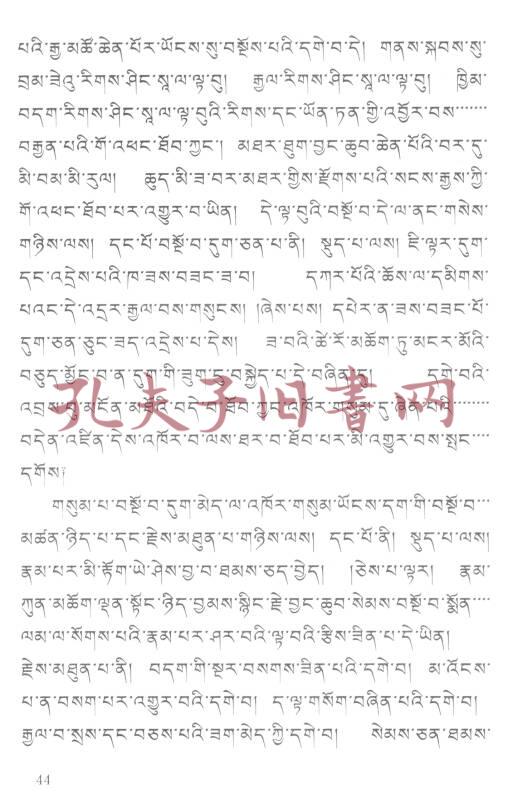 པའི་རྒྱ་མཚོ་ཆེན་པོར་ཡོངས་སུ་བསྔོས་པའི་དགེ་བ་དེ། གནས་སྐབས་སུ་
བྲམ་ཟེའུ་རིགས་ཤིང་སཱ་ལ་ལྟ་བུ། རྒྱལ་རིགས་ཤིང་སཱ་ལ་ལྟ་བུ། ཁྱིམ་
བདག་རིགས་ཤིང་སཱ་ལ་ལྟ་བུའི་རིགས་དང་ཡོན་ཏན་གྱི་འབྱོར་བས་······
བརྒྱན་པའི་གོ་འཕང་ཐོབ་ཀྱང་། མཐར་ཐུག་བྱང་ཆུབ་ཆེན་པོའི་བར་དུ་
མི་བམ་མི་རུལ། ཆུད་མི་ཟ་བར་མཐར་གྱིས་རྫོགས་པའི་སངས་རྒྱས་ཀྱི་
གོ་འཕང་ཐོབ་པར་འགྱུར་བ་ཡིན། དེ་ལྟ་བུའི་བསྔོ་བ་དེ་ལ་ནང་གསེས་
གཉིས་ལས། དང་པོ་བསྔོ་བ་དུག་ཅན་པ་ནི། སྡུད་པ་ལས། ཇི་ལྟར་དུག་
དང་འདྲེས་པའི་ཁ་ཟས་བཟང་ཟ་བ། དཀར་པོའི་ཆོས་ལ་དམིགས་
པའང་དེ་འདྲར་རྒྱལ་བས་གསུངས། །ཞེས་པས། དཔེར་ན་ཟས་བཟང་པོ་
དུག་ཅན་ཅུང་ཟད་འདྲེས་པ་དེས། ཟ་བའི་ཚེ་རོ་མཆོག་ཏུ་མངར་མོའི་
བཅུད་མྱོང་བ་ན་དུག་གི་ཟུག་རྔུ་བསྐྱེད་པ་དེ་བཞིན་དུ། དགེ་བའི་
འབྲས་བུ་མངོན་མཐོའི་བདེ་བ་ཐོབ་ཀྱང་འཁོར་གསུམ་དུ་ཞེན་པའི་······
བདེན་འཛིན་དེས་འཁོར་བ་ལས་ཐར་བ་ཐོབ་པར་མི་འགྱུར་བས་སྤང་···
དགོས།
གསུམ་པ་བསྔོ་བ་དུག་མེད་ལ་འཁོར་གསུམ་ཡོངས་དག་གི་བསྔོ་བ་···
མཚན་ཉིད་པ་དང་རྗེས་མཐུན་པ་གཉིས་ལས། དང་པོ་ནི། སྡུད་པ་ལས།
རྣམ་པར་མི་རྟོག་ཡེ་ཤེས་བྱ་བ་ཐམས་ཅད་བྱེད། །ཅེས་པ་ལྟར། རྣམ་
ཀུན་མཆོག་ལྡན་སྟོང་ཉིད་བྱམས་སྙིང་རྗེ་བྱང་ཆུབ་སེམས་བསྔོ་བ་སྨོན་····
ལམ་ལ་སོགས་པའི་རྣམ་པར་ཤར་བའི་ལྟ་བའི་རྩིས་ཟིན་པ་དེ་ཡིན།
རྗེས་མཐུན་པ་ནི། བདག་གི་སྔར་བསགས་ཟིན་པའི་དགེ་བ། མ་འོངས་
པ་ན་བསག་པར་འགྱུར་བའི་དགེ་བ། ད་ལྟ་གསོག་བཞིན་པའི་དགེ་བ།
རྒྱལ་བ་སྲས་དང་བཅས་པའི་ཟག་མེད་ཀྱི་དགེ་བ། སེམས་ཅན་ཐམས་
44
孔夫子旧书网